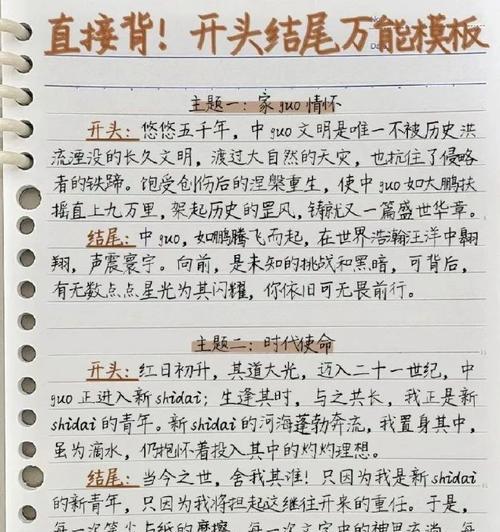 直接背！开头结尾万能模板
主题一：家guo情怀
开头：悠悠五千年，中guo文明是唯一不被历史洪
流湮没的长久文明，渡过大自然的天灾，也抗住了侵略
者的铁蹄。饱受创伤后的涅槃重生，使中guo如大鹏扶
摇直上九万里，架起历史的罡风，铸就又一篇盛世华章。
结尾：中guo，如鹏腾飞而起，在世界浩瀚汪洋中翱
翔，声震寰宇。向前，是未知的挑战和黑暗，可背后，
有无数点点星光为其闪耀，你依旧可无畏前行。
主题二：时代使命
开头：红日初升，其道大光，迈入二十一世纪，中
guo正进入新shidai；生逢其时，与之共长，我正是新
shidai的青年。新shidai的河海蓬勃奔流，我置身其中，
虽为滴水，仍抱怀着投入其中的灼灼理想。
结尾：当今之世，舍我其谁！只因为我是新shidai
的新青年，只因为我将担起这继往开来的重任。于是，
每一次笔尖与纸的摩擦，每一次文字中的神思流淌，每